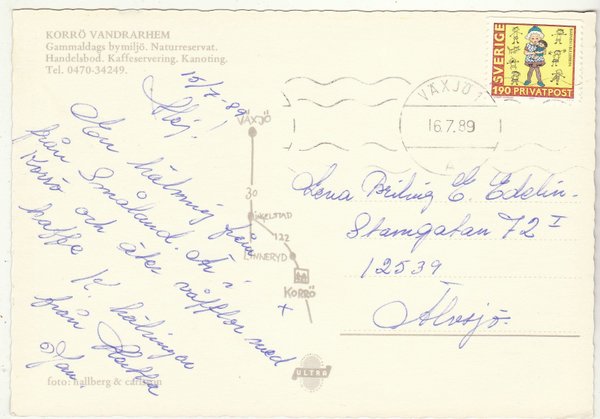 KORRÖ VANDRARHEM
Gammaldags bymiljö. Naturreservat.
Handelsbod. Kaffeservering. Kanoting.
Tel. 0470-34249.
15/7.89
Hej!
En hälsning
från Småland. Är i
Korrö och äter våfflor med
kaffe K. hälsningar
från
Jan.
foto: hallberg & carlsson
VÄXJÖ
30
INGELSTAD
122
LINNERYD
KORRÖ
ULTRA
SVERIGE
190 PRIVATPOST
VÄXJÖ 1
16.7.89
A
Lena Briling E. Edelin.
Stamgatan 72 I
12539
Älvsjö.